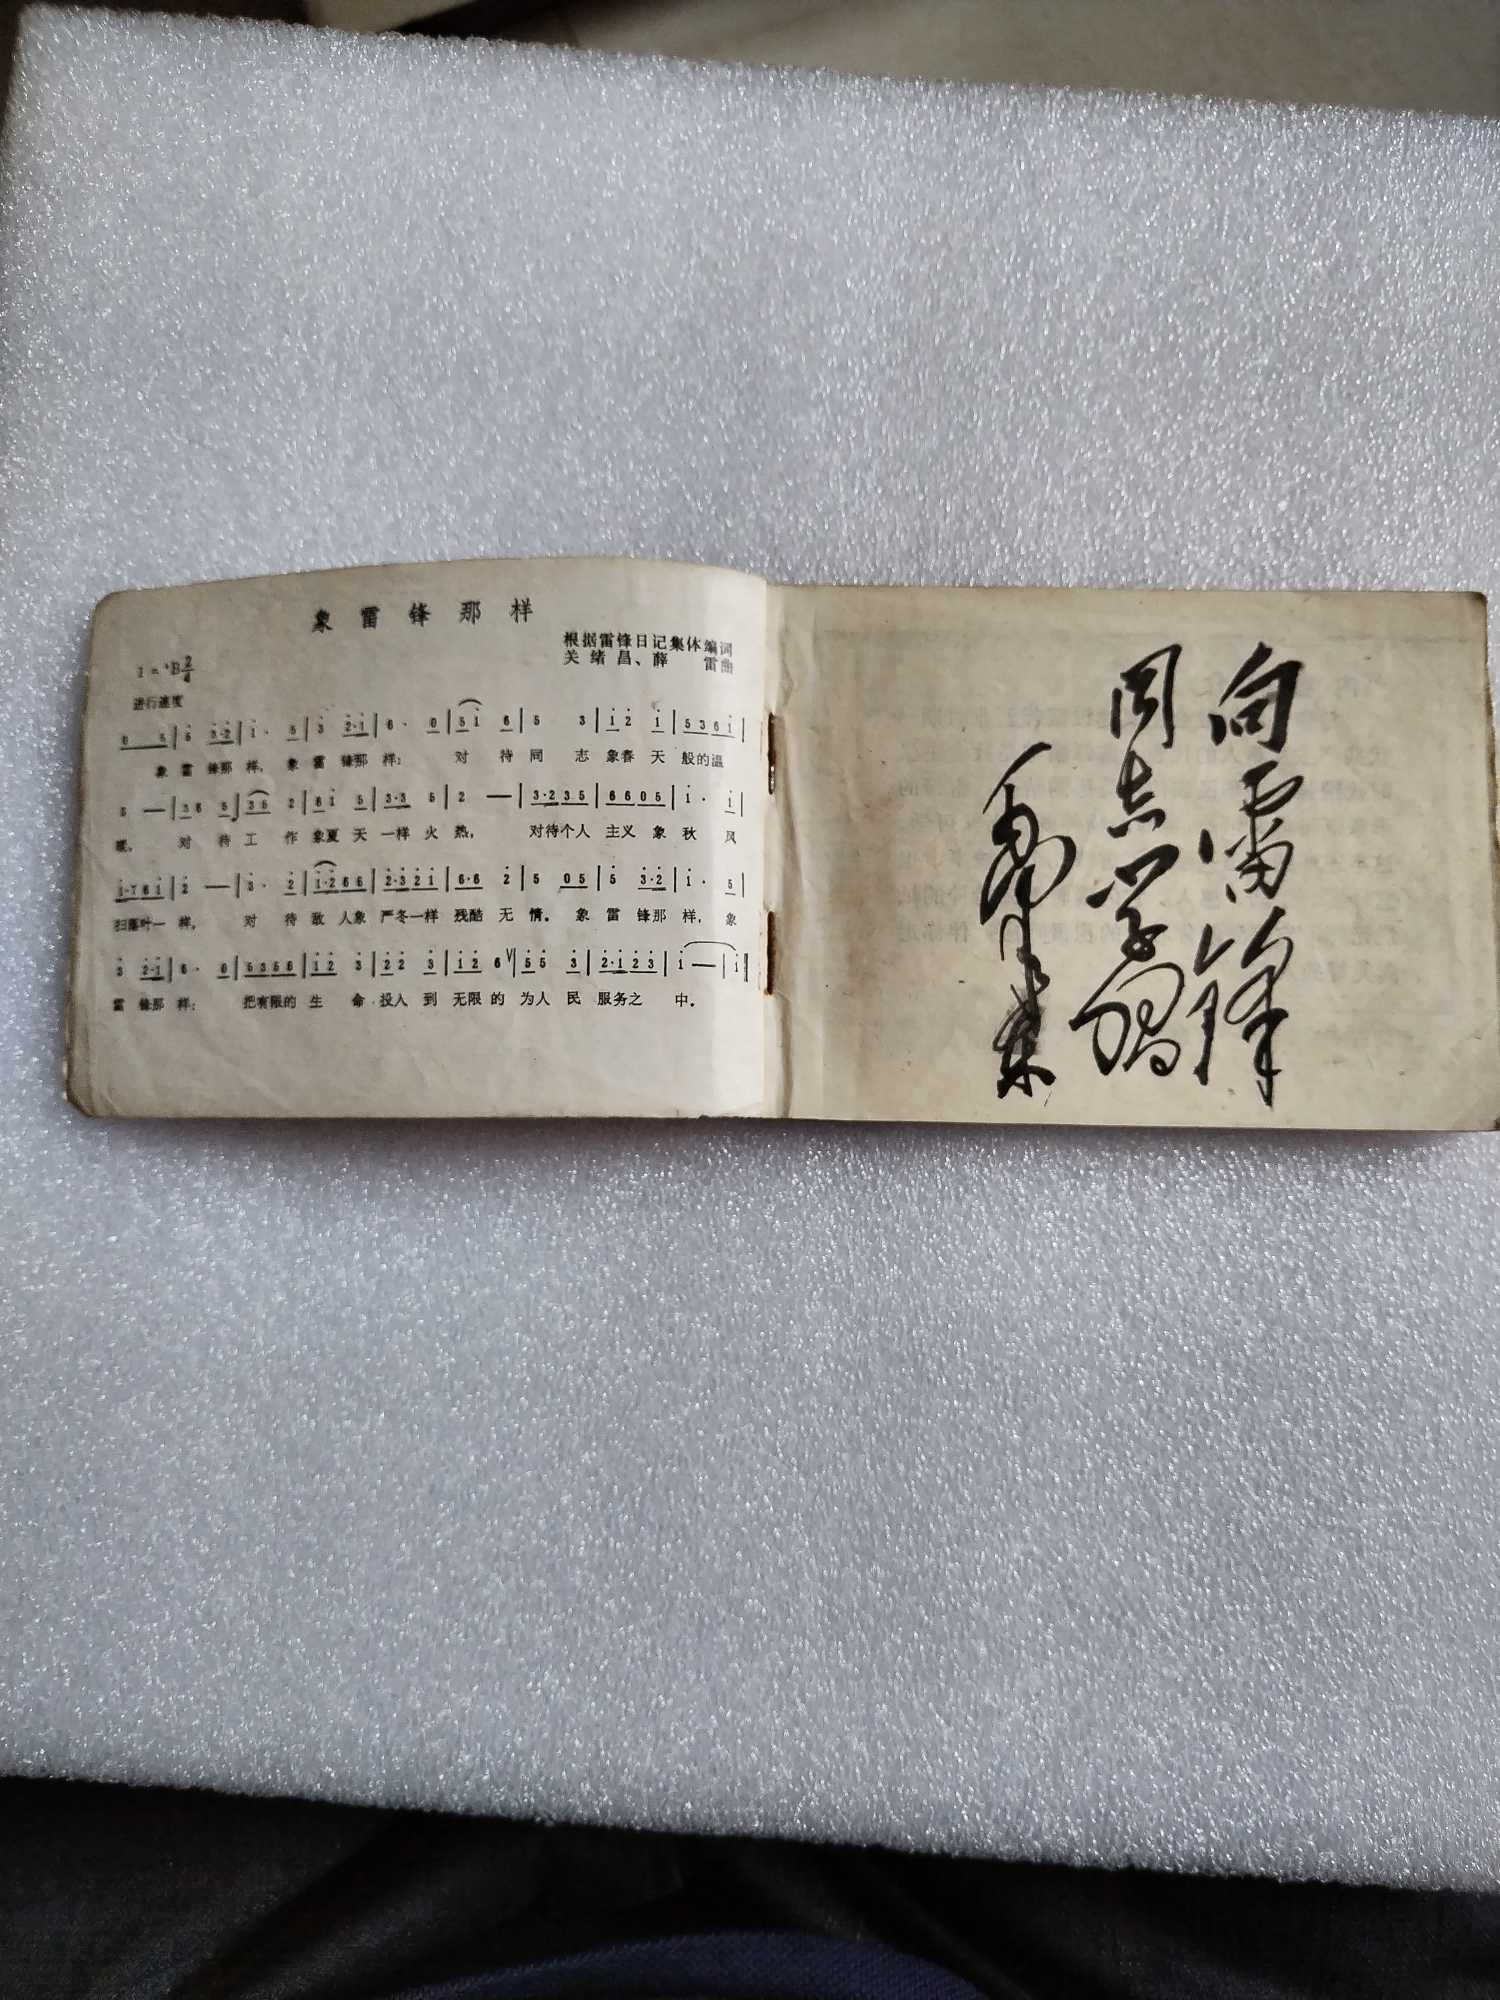 象雷锋那样
根据雷锋日记集体编词
关绪昌、薛雷曲
1=♭B 2/4
进行速度
象雷锋那样，象雷锋那样：对待同志象春天般的温
暖，对待工作象夏天一样火热，对待个人主义象秋风
扫落叶一样，对待敌人象严冬一样残酷无情。象雷锋那样，象
雷锋那样：把有限的生命投入到无限的为人民服务之中。
向雷锋
同志学习
毛泽东